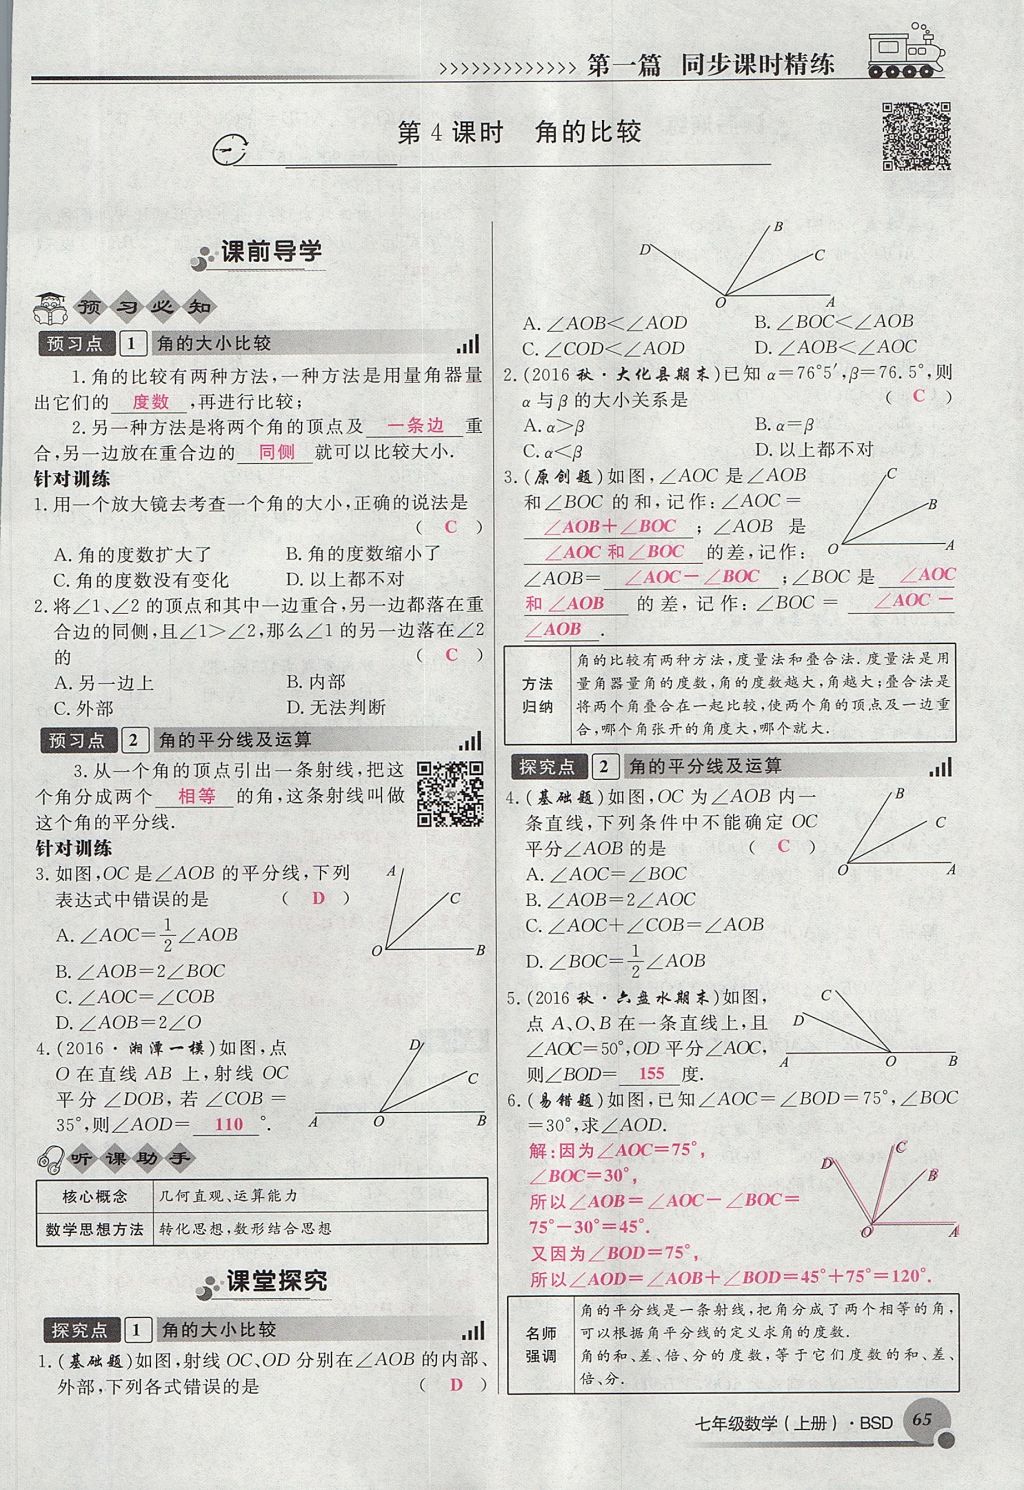 第一篇 同步课时精练
第4课时 角的比较
课前导学
预习必知
预习点 1 角的大小比较
1.角的比较有两种方法,一种方法是用量角器量
出它们的 度数 ,再进行比较;
2.另一种方法是将两个角的顶点及 一条边 重
合,另一边放在重合边的 同侧 就可以比较大小.
针对训练
1.用一个放大镜去考查一个角的大小,正确的说法是
( C )
A.角的度数扩大了 B.角的度数缩小了
C.角的度数没有变化 D.以上都不对
2.将∠1、∠2的顶点和其中一边重合,另一边都落在重
合边的同侧,且∠1>∠2,那么∠1的另一边落在∠2
的 ( C )
A.另一边上 B.内部
C.外部 D.无法判断
预习点 2 角的平分线及运算
3.从一个角的顶点引出一条射线,把这
个角分成两个 相等 的角,这条射线叫做
这个角的平分线.
针对训练
3.如图,OC是∠AOB的平分线,下列
表达式中错误的是 ( D )
A.∠AOC=1/2∠AOB
B.∠AOB=2∠BOC
C.∠AOC=∠COB
D.∠AOB=2∠O
A
C
O
B
4.(2016·湘潭一模)如图,点
O在直线AB上,射线OC
平分∠DOB,若∠COB=
35°,则∠AOD= 110 °.
D
C
A
O
B
听课助手
核心概念 几何直观、运算能力
数学思想方法 转化思想,数形结合思想
课堂探究
探究点 1 角的大小比较
1.(基础题)如图,射线OC、OD分别在∠AOB的内部、
外部,下列各式错误的是 ( D )
B
D
C
O
A
A.∠AOB<∠AOD B.∠BOC<∠AOB
C.∠COD<∠AOD D.∠AOB<∠AOC
2.(2016秋·大化县期末)已知α=76°5′,β=76.5°,则
α与β的大小关系是 ( C )
A.α>β B.α=β
C.α<β D.以上都不对
3.(原创题)如图,∠AOC是∠AOB
和∠BOC的和,记作:∠AOC=
∠AOB+∠BOC ;∠AOB 是
∠AOC和∠BOC 的差,记作:
∠AOB= ∠AOC-∠BOC ;∠BOC是 ∠AOC
和∠AOB 的差,记作:∠BOC= ∠AOC-
∠AOB .
C
B
O
A
方法
归纳
角的比较有两种方法,度量法和叠合法.度量法是用
量角器量角的度数,角的度数越大,角越大;叠合法是
将两个角叠合在一起比较,使两个角的顶点及一边重
合,哪个角张开的角度大,哪个就大.
探究点 2 角的平分线及运算
4.(基础题)如图,OC为∠AOB内一
条直线,下列条件中不能确定OC
平分∠AOB的是 ( C )
A.∠AOC=∠BOC
B.∠AOB=2∠AOC
C.∠AOC+∠COB=∠AOB
D.∠BOC=1/2∠AOB
B
C
O
A
5.(2016秋·六盘水期末)如图,
点A、O、B在一条直线上,且
∠AOC=50°,OD平分∠AOC,
则∠BOD= 155 度.
C
D
A
O
B
6.(易错题)如图,已知∠AOC=∠BOD=75°,∠BOC
=30°,求∠AOD.
解:因为∠AOC=75°,
∠BOC=30°,
所以∠AOB=∠AOC-∠BOC=
75°-30°=45°.
又因为∠BOD=75°,
所以∠AOD=∠AOB+∠BOD=45°+75°=120°.
D
C
B
O
A
名师
强调
角的平分线是一条射线,把角分成了两个相等的角,
可以根据角平分线的定义求角的度数.
角的和、差、倍、分的度数,等于它们度数的和、差、
倍、分.
七年级数学(上册)·BSD 65